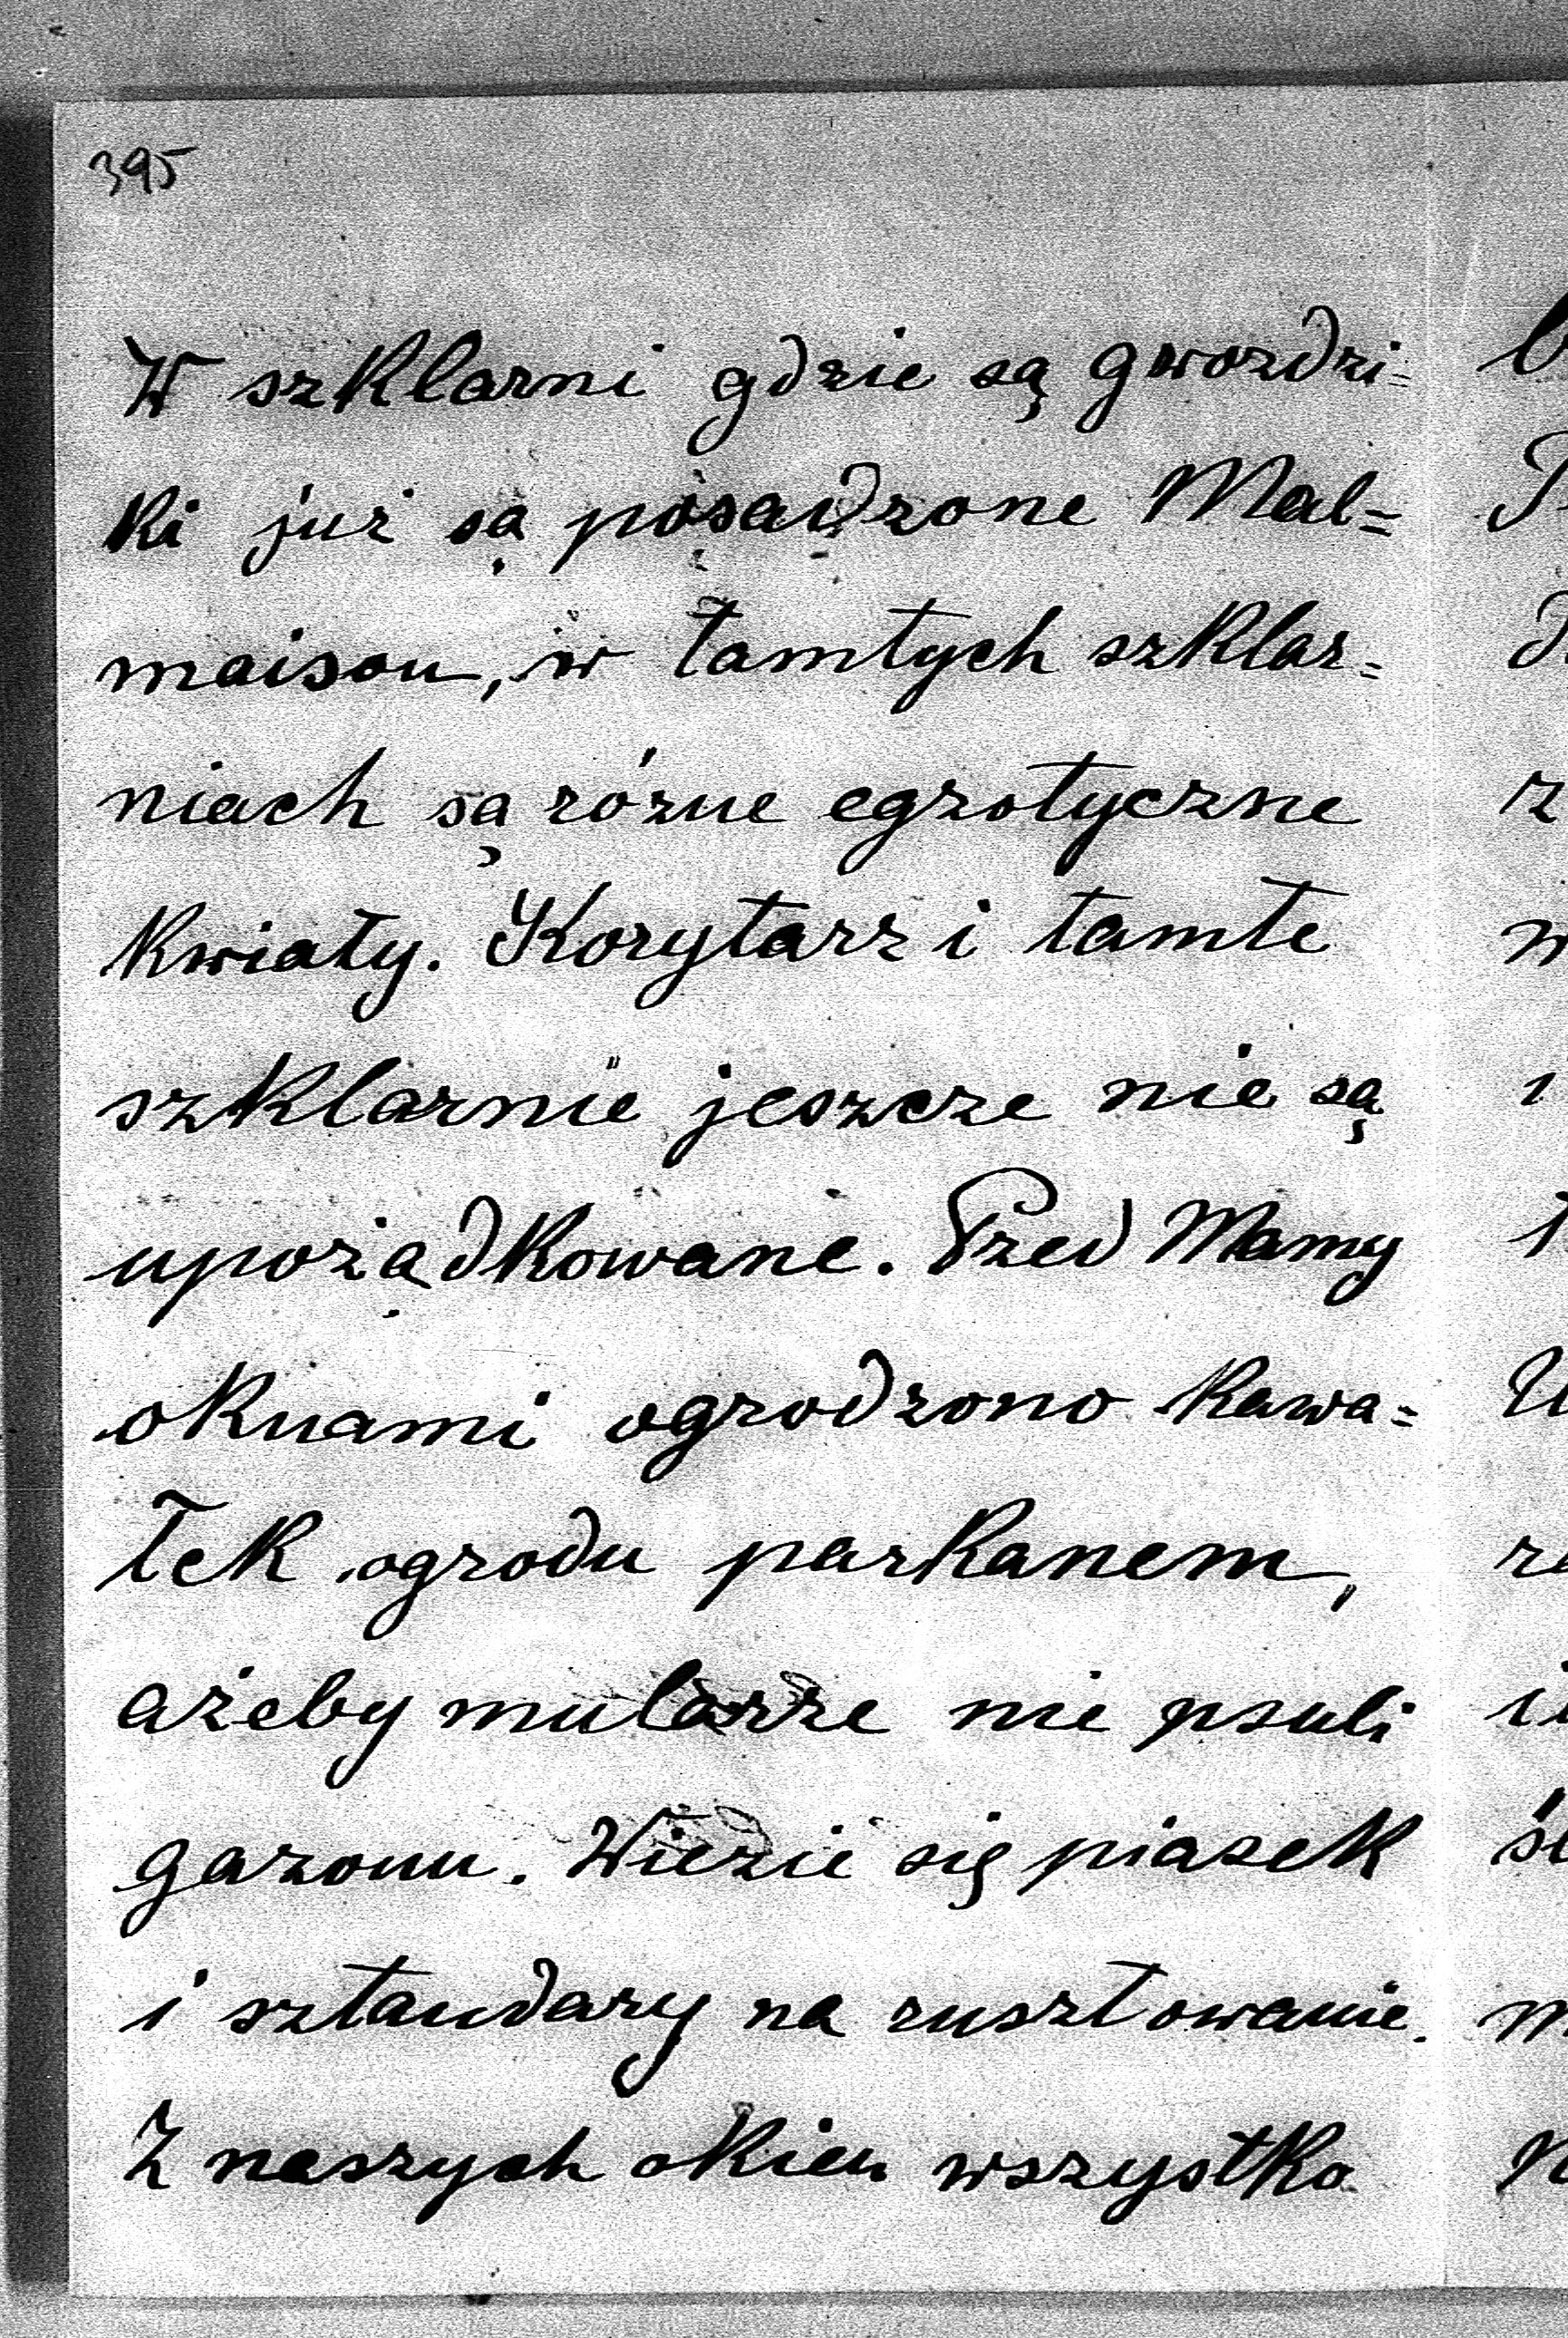 395
W szklarni gdzie są gwozdzi=
ki już są posadzone Mal=
maison, w tamtych szklar=
niach są różne egzotyczne
kwiaty. Korytarz i tamte
szklarnie jeszcze nie są
upożądkowane. Przed Mamy
oknami ogrodzono kawa=
łek ogrodu parkanem,
ażeby mularze nie psuli
gazonu. Wiezie się piasek
i sztandary na rusztowanie.
Z naszych okien wszystko